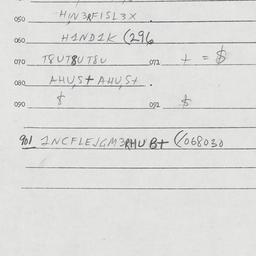 050 HIN3RFISL3X .
060 H1ND1K (296
070 T8UT8UT8U 071 + = $
080 AHUS+AHUS+ .
090 $ 091 $
901 1NCFLEJGM3RHUB+ (/068030